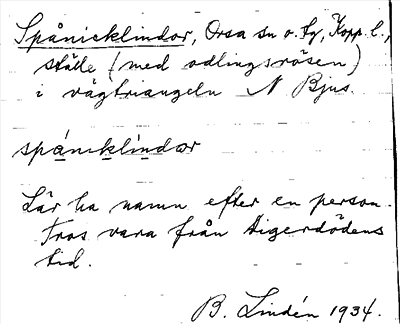 Spånicklindor, Orsa sn o. tg, Kopp. l.,
ställe (med odlingsrösen)
i vägtriangeln N Bjus.
spánıklındœr
Lär ha namn efter en person.
Tros vara från digerdödens
tid.
B. Lindén 1934.